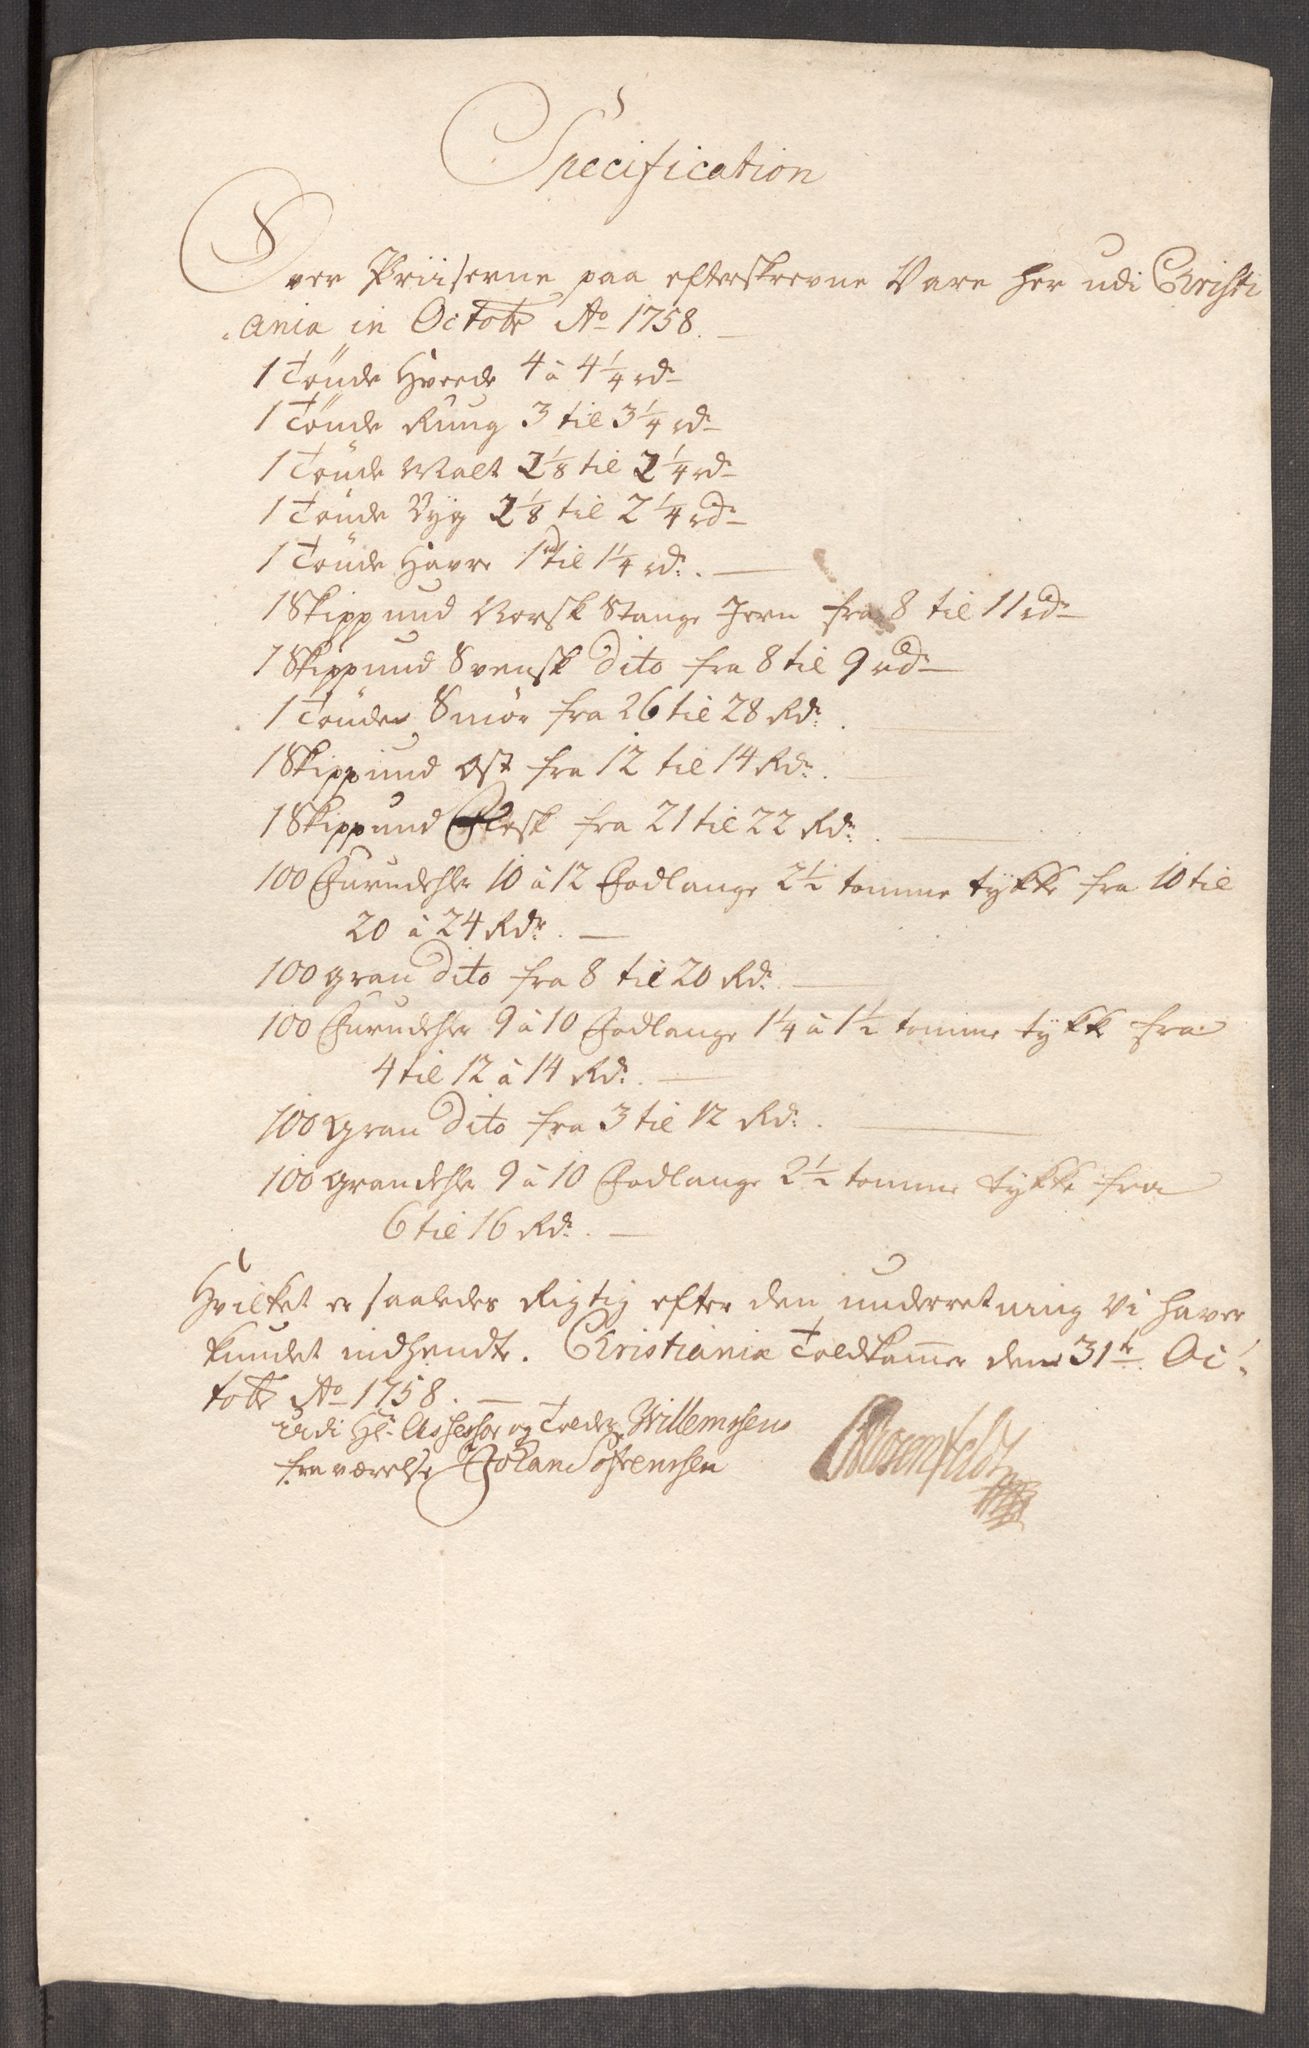 Specification
Over Priiserne paa efterskrevne Vare her udi Christi
ania in Octobr Ao 1758.
1 Tönde Hvede 4 á 4 1/4 rdr
1 Tönde Rung 3 til 3 1/4 rdr
1 Tönde Malt 2 1/8 til 2 1/4 rdr
1 Tönde Byg 2 1/8 til 2 1/4 rdr
1 Tönde Havre 1 rd til 1 1/4 rdr.
1 Skippund Norsk Stange Jern fra 8 til 11 rdr
1 Skippund Svensk dito fra 8 til 9 rdr
1 Tönde Smör fra 26 til 28 Rdr.
1 Skippund Ost fra 12 til 14 Rdr.
1 Skippund Flesk fra 21 til 22 Rdr.
100 Furudehler 10 á 12 Fodlange 2 1/2 tomme tykke fra 10 til
20 á 24 Rdr.
100 gran dito fra 8 til 20 Rdr.
100 Furudehler 9 á 10 Fodlange 1 1/4 á 1 1/2 tomme tykk fra
4 til 12 á 14 Rdr.
100 Gran dito fra 3 til 12 Rdr.
100 Grandehler 9 á 10 Fodlange 2 1/2 tomme tykke fra
6 til 16 Rdr.
Hvilket er saaledes Rigtig efter den underretning Vi haver
kundet indhendte. Christiania Toldkammer den 31te Oc-
tobr Ao 1758.
udi Hr. Assessor og Tolder Willemsens
fraværelse Johan Sörensen
Rosenfeldt